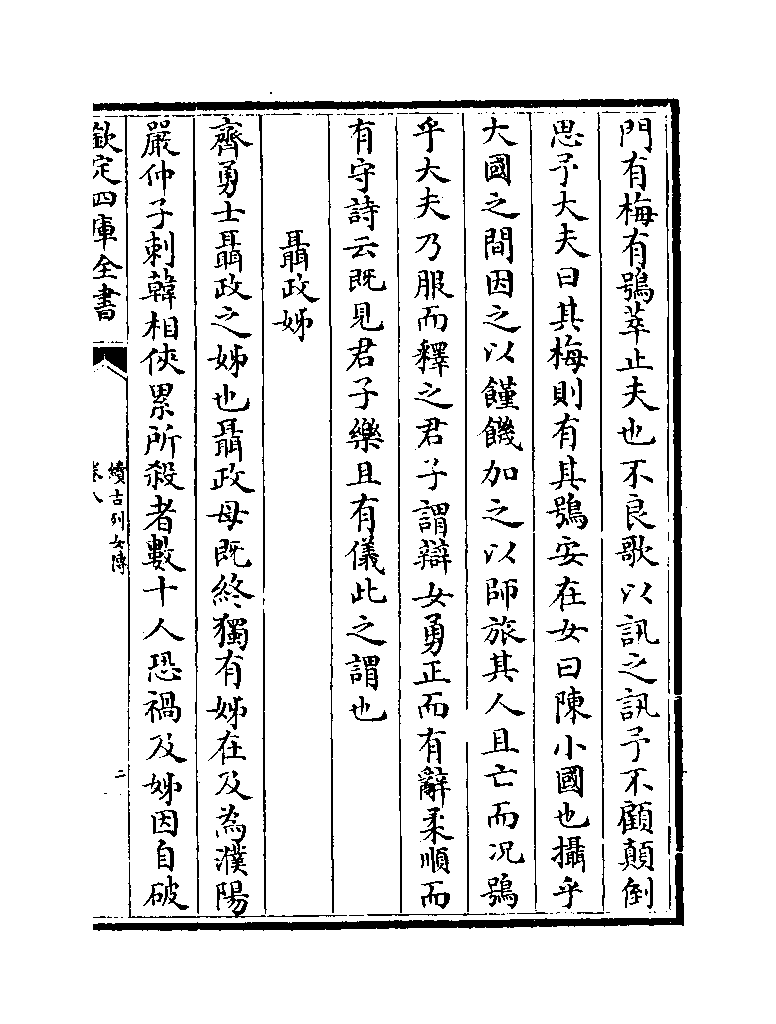 門有梅有鴞萃止夫也不良歌以訊之訊予不顧顛倒
思予大夫曰其梅則有其鴞安在女曰陳小國也攝乎
大國之間因之以饉饑加之以師旅其人且亡而况鴞
乎大夫乃服而釋之君子謂辯女勇正而有辭柔順而
有守詩云既見君子樂且有儀此之謂也
聶政姊
齊勇士聶政之姊也聶政母既終獨有姊在及為濮陽
嚴仲子刺韓相俠累所殺者數十人恐禍及姊因自破
欽定四庫全書
續古列女傳
卷八
二